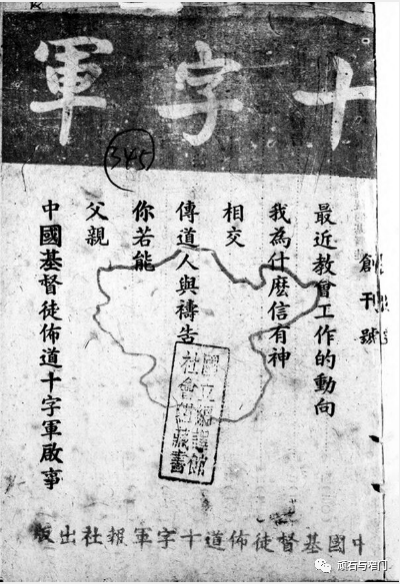 十字軍
345
創刊號
最近教會工作的動向
我為什麽信有神
相交
傳道人與禱告
你若能
父親
中國基督徒佈道十字軍啟事
國立編譯館
社會組藏書
中國基督徒佈道十字軍報社出版
顽石与窄门